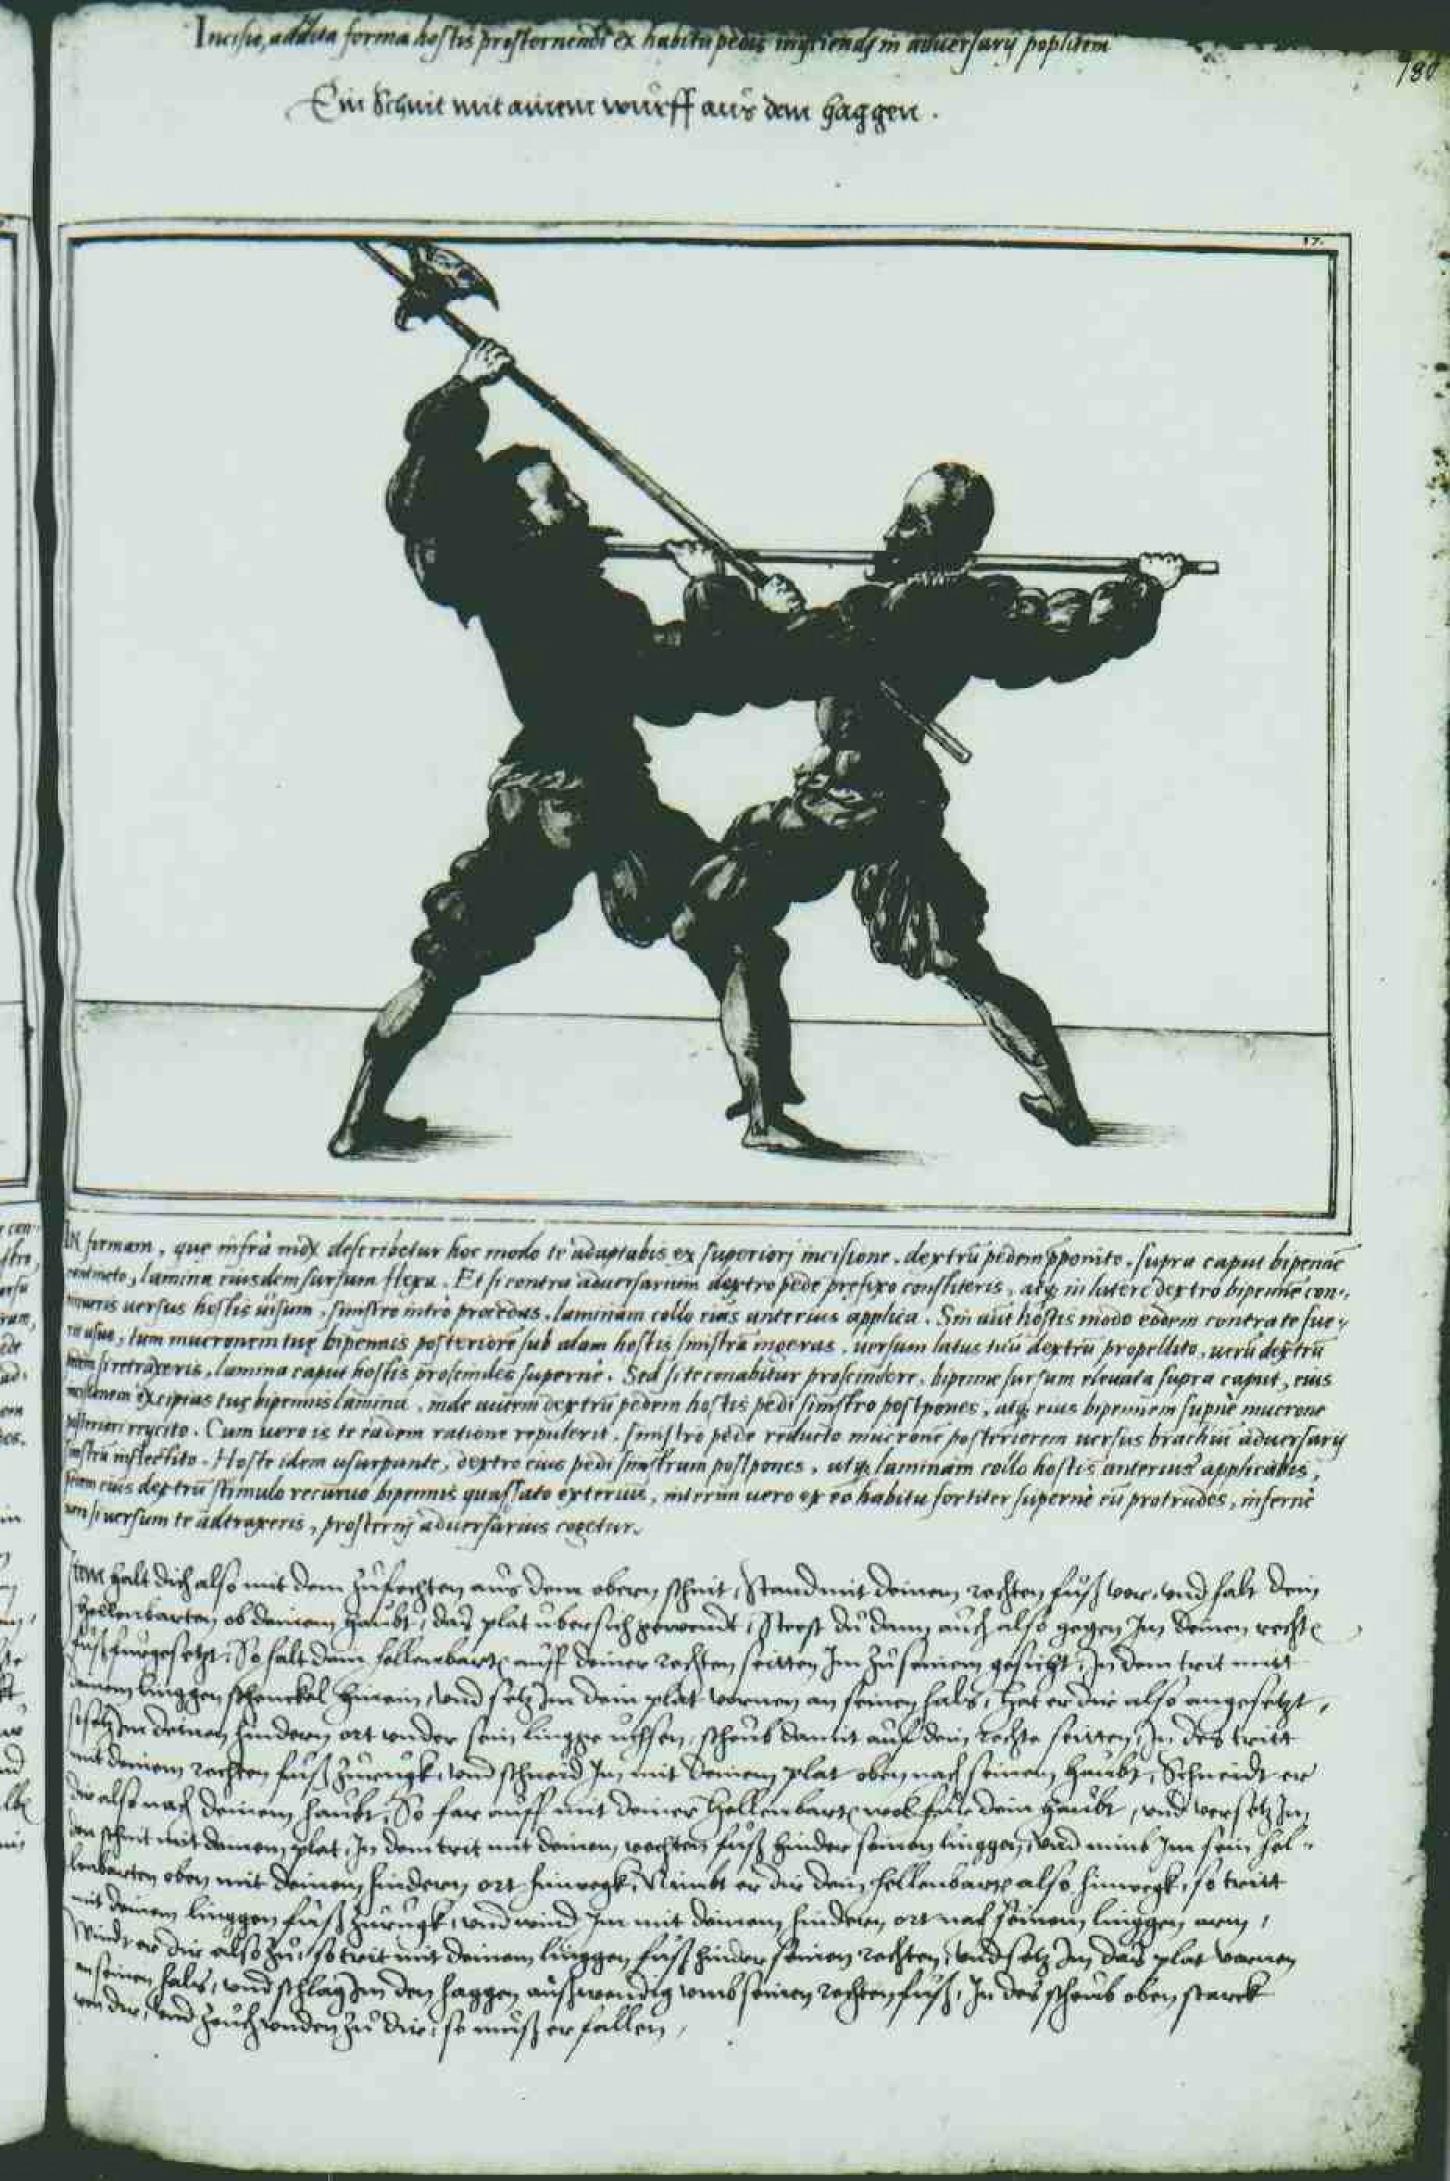 Incisio, addita forma hostis prosternendi ex habitu pedis ingriendi in adversarij poplitem
180
Ein Schnit mit ainem wurff aus dem haggen.
17.
IN formam, quę infra mox describetur hoc modo te adaptabis ex superiori incisione, dextrũ pedem pponito, supra caput bipennẽ
contineto, lamina eiusdem sursum flexa. Et si contra adversarium dextro pede prefixo constiteris, atq in latere dextro bipennẽ con-
versus hostis visum, sinistro intro procedas, laminam collo eius anterius applica. Sin aut hostis modo eodem contra te fue
rit usus, tum mucronem tuę bipennis posteriorẽ sub alam hostis sinistrã ingeras, versum latus tuũ dextrũ propellito, verũ dextrũ
si retraxeris, lamina caput hostis proscindes supernè. Sed si te conabitur proscindere, bipenne sursum elevata supra caput, eius
excipias tuę bipennis lamina, inde autem dextrũ pedem hostis pedi sinistro postpones, atq eius bipennem supnè mucrone
posteriori reijcito. Cum vero is te eadem ratione repulerit, sinistro pede reducto mucronẽ posteriorem versus brachiũ adversarij
sinistrũ inflectito. Hoste idem usurpante, dextro eius pedi sinistrum postpones, atq laminam collo hostis anterius applicabis,
eius dextrũ stimulo recurvo bipennis quassato exterius, interim vero ex eo habitu fortiter supernè eũ protrudes, infernè
si versum te adtraxeris, prosterni adversarius cogetur.
Item halt dich also mit dem zufechten aus dem obern schnit, Stand mit deinem rechten fuß vor, und halt dein
hellenbarten ob deinem haubt, das plat ubersich gewendt, Steest du dann auch also gegen Im deinen recht
fuß fürgesetzt, So halt dein hellenbart auff deiner rechten seitten Im zu seinem gesicht, In dem trit mitt
deinem linggen schenckel hinein, und setz Im dein plat vornen an seinen hals, hat er dir also angesetzt,
deinen hindern ort under sein lingge uchsen, scheub damit auf dein rechte seitten, In des tritt
mit deinem rechten fuß zurugk, und schneid Im mit deinem plat oben nach seinem haubt, Schneidt er
dir also nach deinem haubt, So far auff mit deiner hellenbart wol fur dein haubt, und versetz Im
den schnit mit deinem plat, In dem trit mit deinem rechten fuß hinder seinen linggen, und nimb Im sein hel-
lenbarten oben mit deinem hindern ort hinwegk, Nimbt er dir dein hellenbart also hinwegk, so tritt
mit deinem linggen fuß zurugk, und wind Im mit deinem hindern ort nach seinem linggen arm,
Windt er dir also zu, so trit mit deinem linggen fuß hinder seinen rechten, und setz Im das plat vornen
an seinen hals, und schlag Im den haggen auswendig umb seinen rechten fuß, In des scheub oben starck
von dir, und zeuch unden zu dir, so muß er fallen,